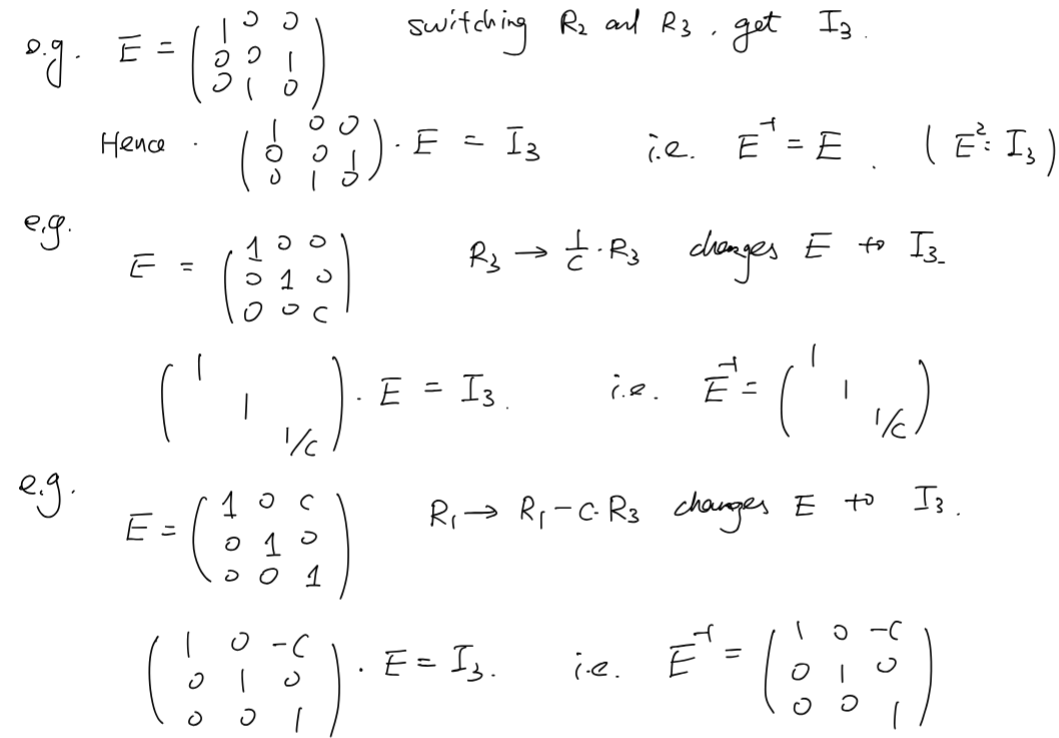 e.g. E = ( 1 0 0 ; 0 0 1 ; 0 1 0 ) switching R₂ and R₃, get I₃.
Hence . ( 1 0 0 ; 0 0 1 ; 0 1 0 ) · E = I₃ i.e. E⁻¹ = E . ( E² = I₃ )
e.g.
E = ( 1 0 0 ; 0 1 0 ; 0 0 c ) R₃ → 1/c · R₃ changes E to I₃.
( 1 ; 1 ; 1/c ) · E = I₃. i.e. E⁻¹ = ( 1 ; 1 ; 1/c )
e.g.
E = ( 1 0 c ; 0 1 0 ; 0 0 1 ) R₁ → R₁ - c·R₃ changes E to I₃.
( 1 0 -c ; 0 1 0 ; 0 0 1 ) · E = I₃. i.e. E⁻¹ = ( 1 0 -c ; 0 1 0 ; 0 0 1 )